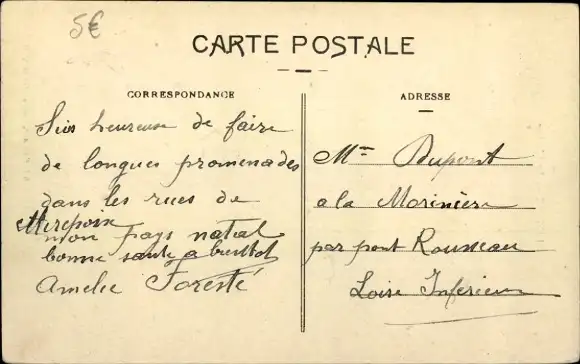 5€
CARTE POSTALE
CORRESPONDANCE
Suis heureuse de faire
de longues promenades
dans les rues de
Mirepoix
mon pays natal
bonne sante a
Amelie Foresté
ADRESSE
Dupont
a la Morinière
par pont Rousseau
Loire Inferieure